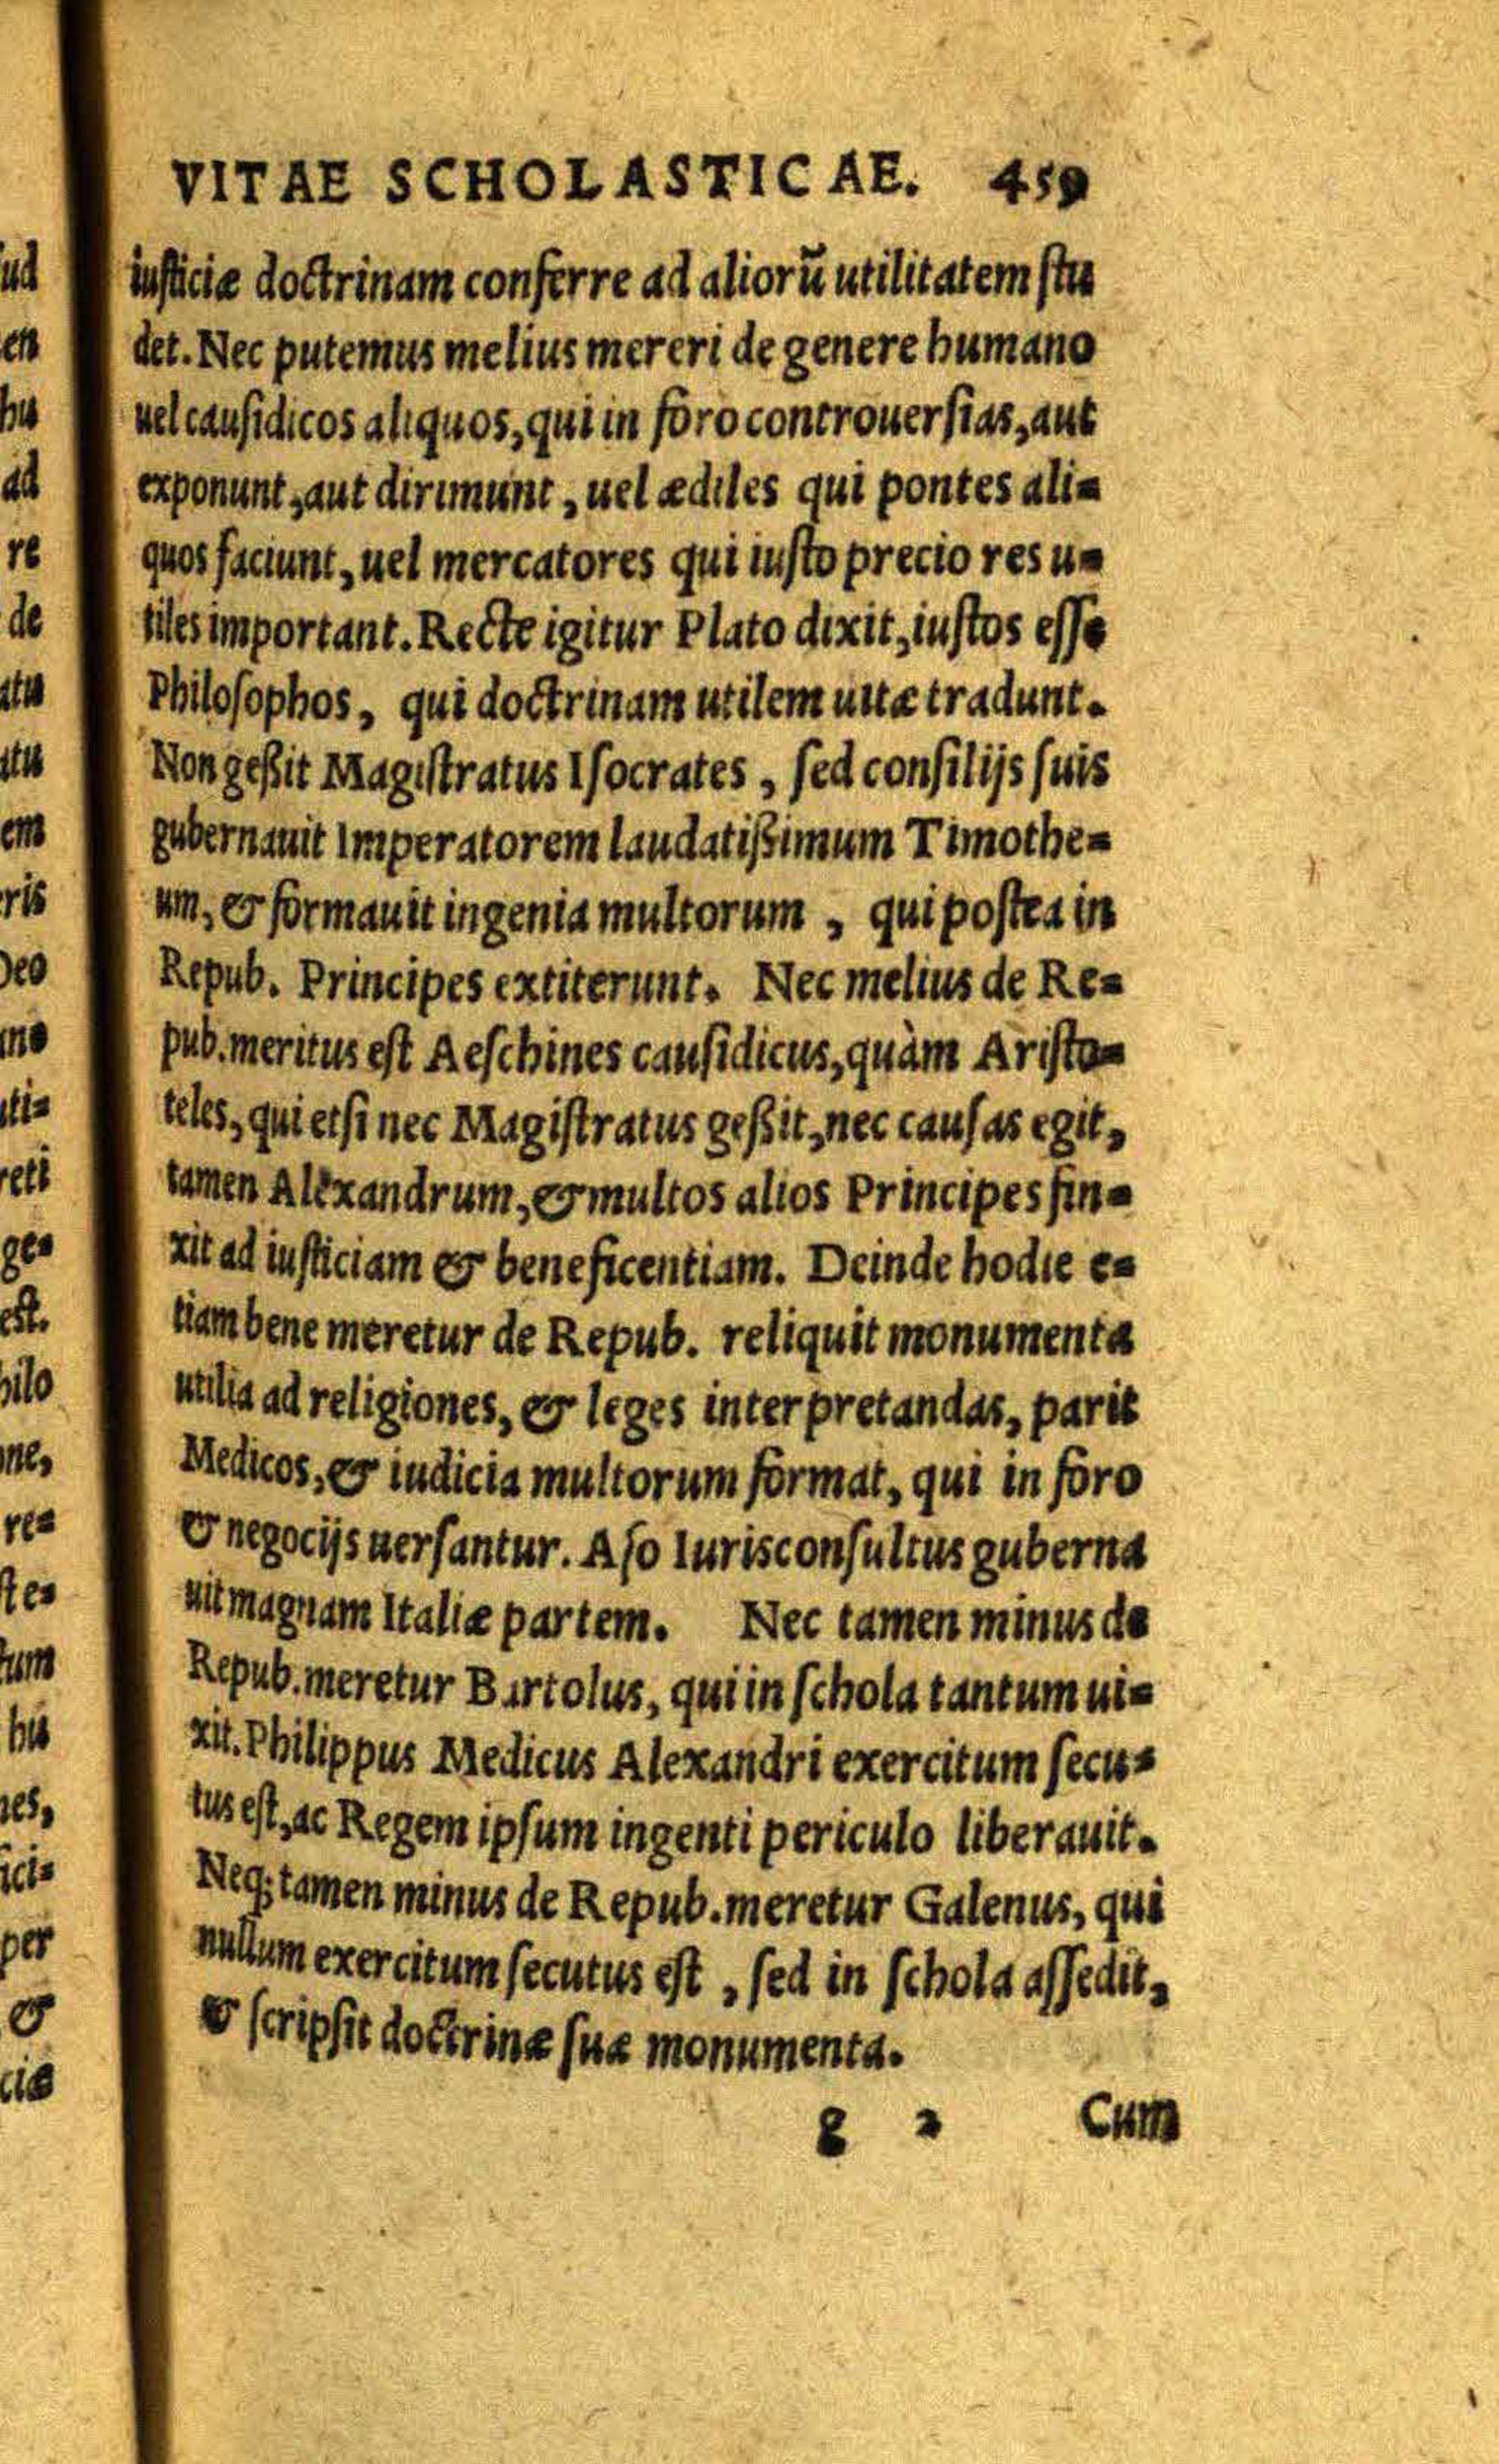 VITAE SCHOLASTICAE. 459
iusticiæ doctrinam conferre ad aliorū utilitatem stu
det. Nec putemus melius mereri de genere humano
uel causidicos aliquos, qui in foro controuersias, aut
exponunt, aut dirimunt, uel ædiles qui pontes ali-
quos faciunt, uel mercatores qui iusto precio res u-
tiles important. Recte igitur Plato dixit, iustos esse
Philosophos, qui doctrinam utilem uitæ tradunt.
Non geßit Magistratus Isocrates, sed consilijs suis
gubernauit Imperatorem laudatißimum Timothe-
um, & formauit ingenia multorum, qui postea in
Repub. Principes extiterunt. Nec melius de Re-
pub. meritus est Aeschines causidicus, quàm Aristo-
teles, qui etsi nec Magistratus geßit, nec causas egit,
tamen Alexandrum, & multos alios Principes fin-
xit ad iusticiam & beneficentiam. Deinde hodie e-
tiam bene meretur de Repub. reliquit monumenta
utilia ad religiones, & leges interpretandas, parit
Medicos, & iudicia multorum format, qui in foro
& negocijs uersantur. Aso Iurisconsultus guberna
uit magnam Italiæ partem. Nec tamen minus de
Repub. meretur Bartolus, qui in schola tantum ui-
xit. Philippus Medicus Alexandri exercitum secu-
tus est, ac Regem ipsum ingenti periculo liberauit.
Neq; tamen minus de Repub. meretur Galenus, qui
nullum exercitum secutus est, sed in schola assedit,
& scripsit doctrinæ suæ monumenta.
g 2 Cum